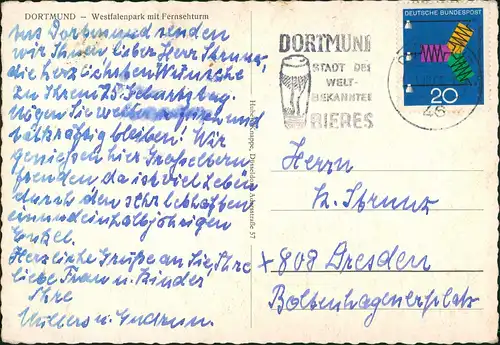 DORTMUND – Westfalenpark mit Fernsehturm
Aus Dortmund senden
wir Ihnen, lieber Herr Strunz,
die herzlichsten Wünsche
zu Ihrem 75. Geburtstag.
Mögen Sie weiter und
tatkräftig bleiben! Wir
genießen hier Großeltern
freuden da ist viel Leben
durch den sehr lebhaften
einundeinhalbjährigen
Enkel.
Herzliche Grüße an Sie, Ihre
liebe Frau u. Kinder
Ihre
u. Gudrun.
Düsseldorf 57
DORTMUND
STADT DES
WELT-
BEKANNTEN
BIERES
46
DEUTSCHE BUNDESPOST
20
Herrn
K. Strunz
x 808 Dresden
Boltenhagenerplatz